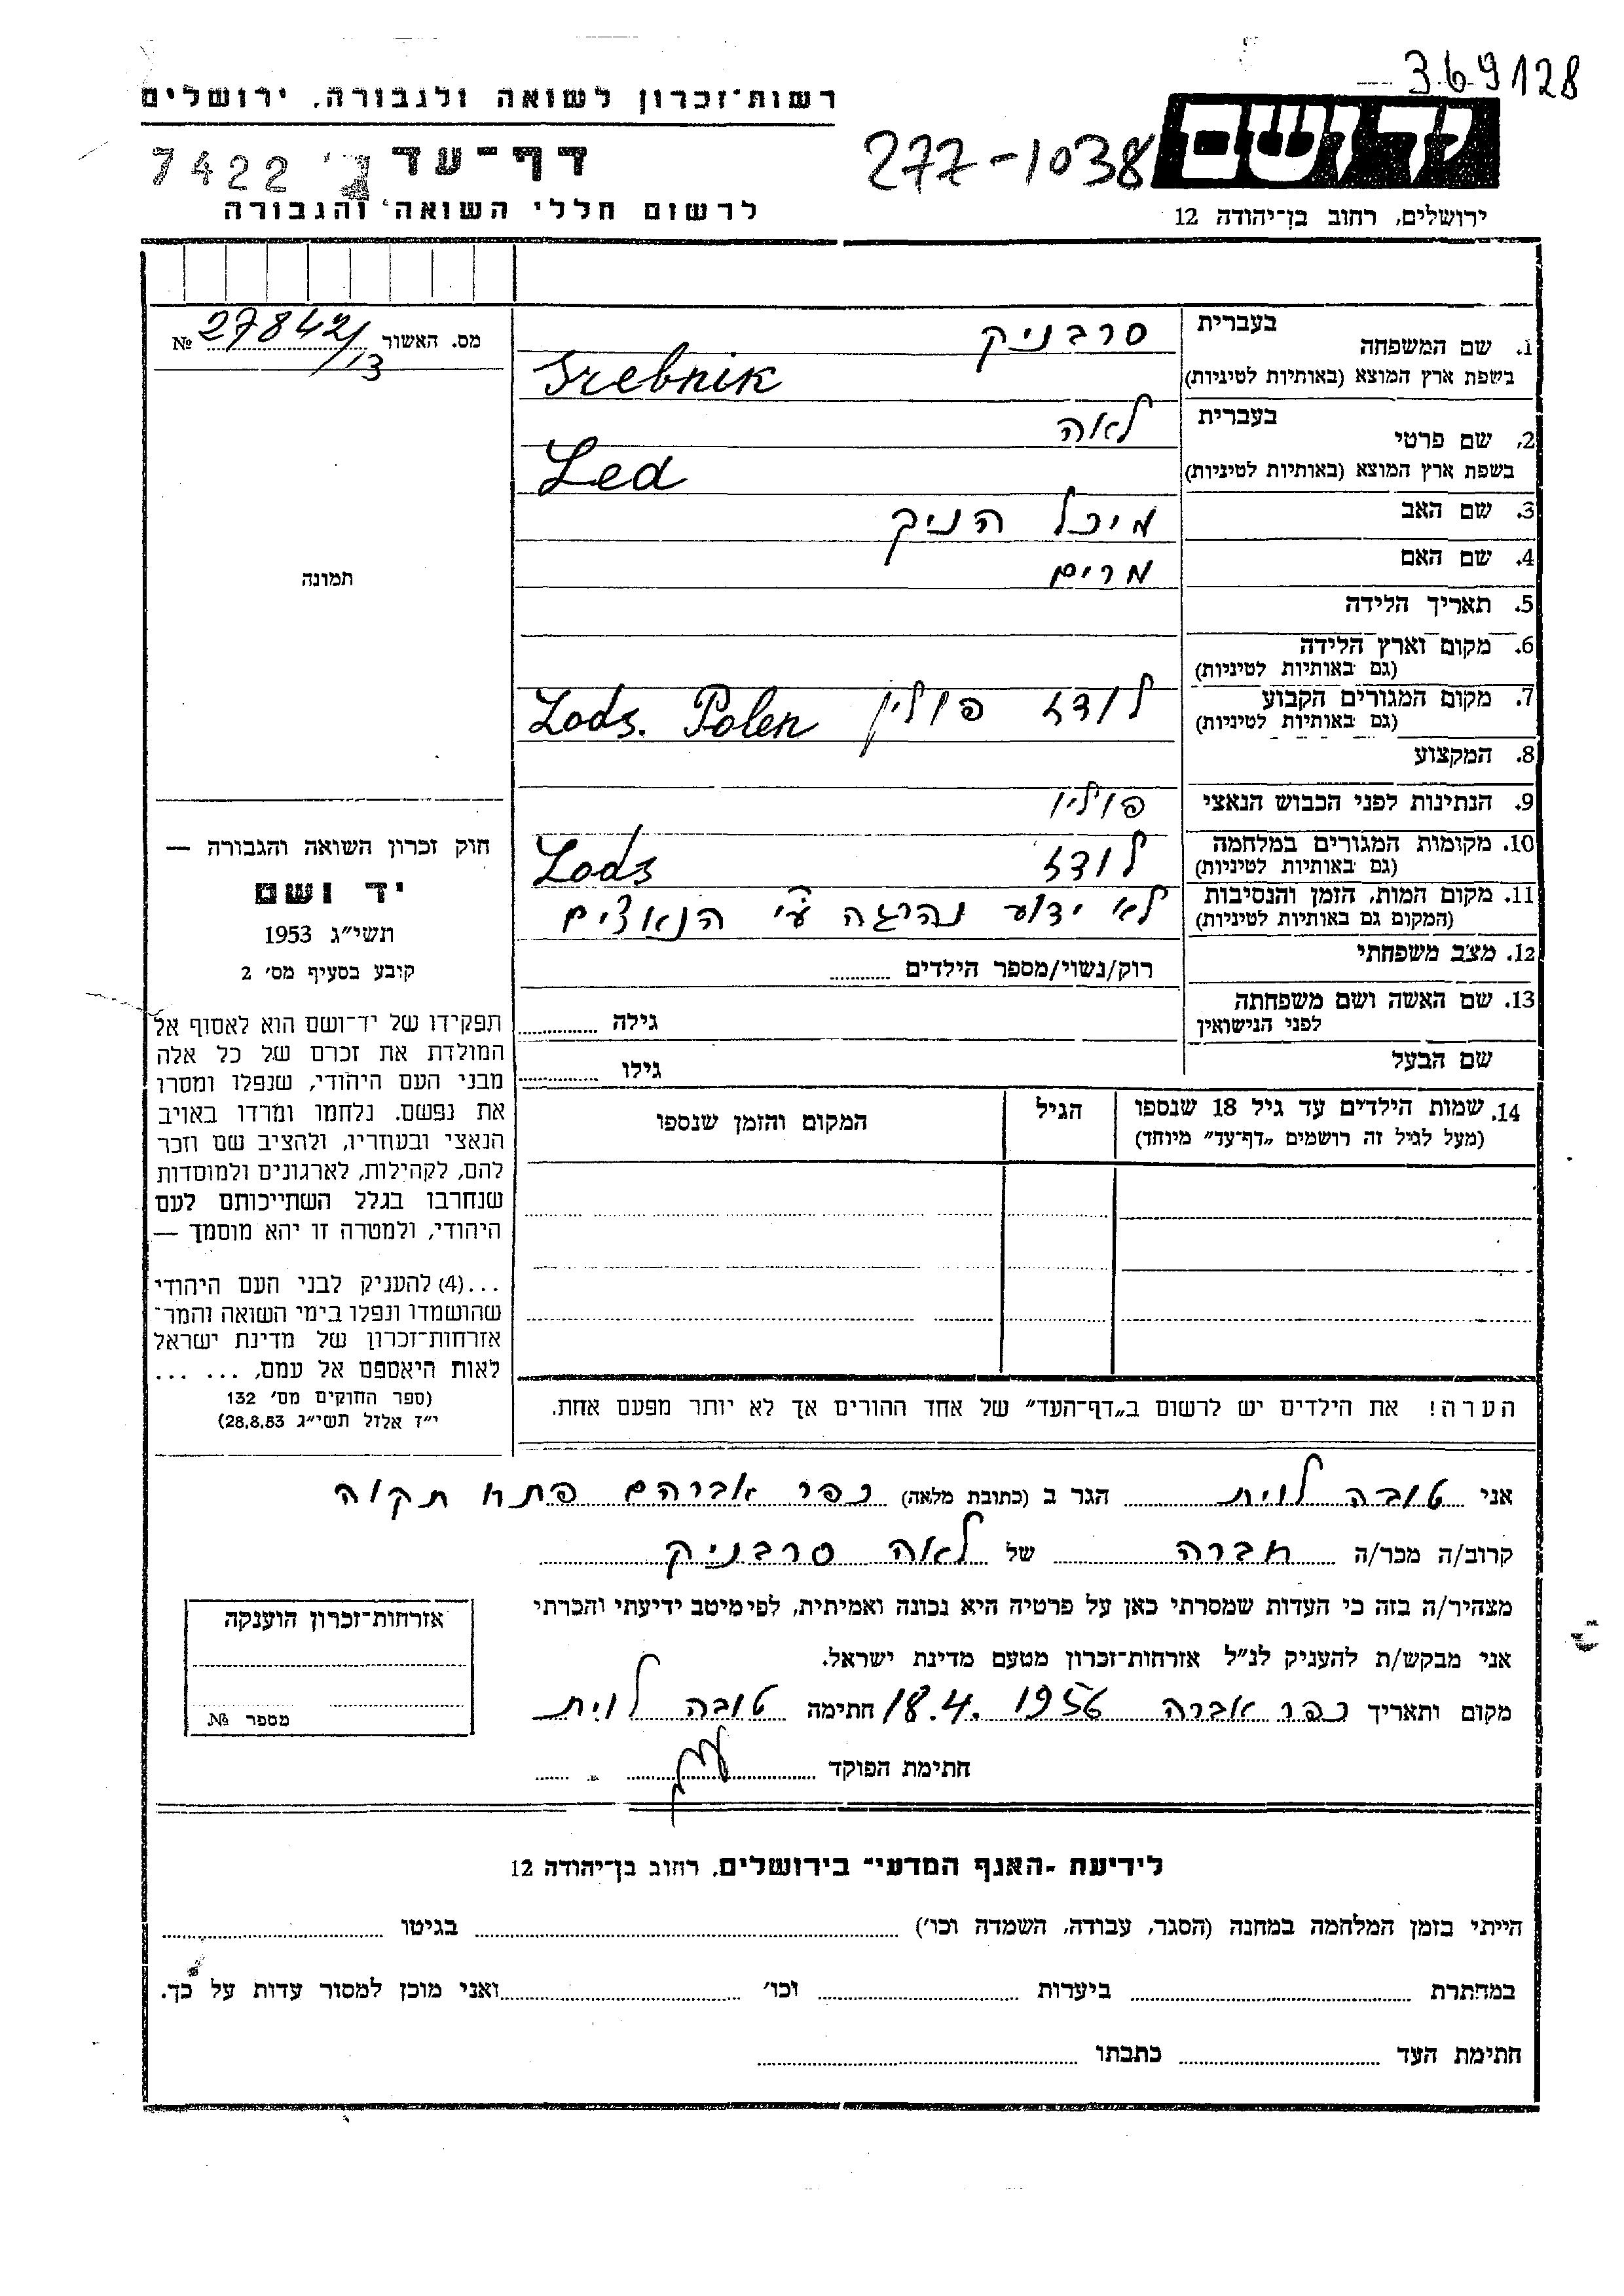 369128
רשות־זכרון לשואה ולגבורה, ירושלים
ידושם
277-1038
דף־עד
7422
לרשום חללי השואה והגבורה
ירושלים, רחוב בן־יהודה 12
מס. האשור № 27842/13
1. שם המשפחה בעברית סרבניק
בשפת ארץ המוצא (באותיות לטיניות) Srebnik
2. שם פרטי בעברית לאה
בשפת ארץ המוצא (באותיות לטיניות) Lea
3. שם האב מיכל הניק
4. שם האם מרים
5. תאריך הלידה
6. מקום וארץ הלידה
(גם באותיות לטיניות)
7. מקום המגורים הקבוע לודז פולין Lods. Polen
(גם באותיות לטיניות)
8. המקצוע
9. הנתינות לפני הכבוש הנאצי פוילין
10. מקומות המגורים במלחמה לודז Lods
(גם באותיות לטיניות)
11. מקום המות, הזמן והנסיבות לא ידוע נהרגה ע״י הנאצים
(המקום גם באותיות לטיניות)
12. מצב משפחתי רוק/נשוי/מספר הילדים
13. שם האשה ושם משפחתה
לפני הנישואין גילה
שם הבעל גילו
14. שמות הילדים עד גיל 18 שנספו הגיל המקום והזמן שנספו
(מעל לגיל זה רושמים „דף־עד״ מיוחד)
הערה! את הילדים יש לרשום ב„דף־העד״ של אחד ההורים אך לא יותר מפעם אחת.
תמונה
חוק זכרון השואה והגבורה —
יד ושם
תשי״ג 1953
קובע בסעיף מס׳ 2
תפקידו של יד־ושם הוא לאסוף אל
המולדת את זכרם של כל אלה
מבני העם היהודי, שנפלו ומסרו
את נפשם. נלחמו ומרדו באויב
הנאצי ובעוזריו, ולהציב שם וזכר
להם, לקהילות, לארגונים ולמוסדות
שנחרבו בגלל השתייכותם לעם
היהודי, ולמטרה זו יהא מוסמך —
...(4) להעניק לבני העם היהודי
שהושמדו ונפלו בימי השואה והמר־
אזרחות־זכרון של מדינת ישראל
לאות היאספם אל עמם, ... ...
(ספר החוקים מס׳ 132
י״ז אלול תשי״ג 28.8.53)
אני טובה לוית הגר ב (כתובת מלאה) כפר אברהם פתח תקוה
קרוב/ה מכר/ה חברה של לאה סרבניק
מצהיר/ה בזה כי העדות שמסרתי כאן על פרטיה היא נכונה ואמיתית, לפי מיטב ידיעתי והכרתי
אני מבקש/ת להעניק לנ״ל אזרחות־זכרון מטעם מדינת ישראל.
מקום ותאריך כפר אברה 18.4.1956 חתימה טובה לוית
חתימת הפוקד
אזרחות־זכרון הוענקה
מספר №
לידיעת ־האגף המדעי״ בירושלים, רחוב בן־יהודה 12
הייתי בזמן המלחמה במחנה (הסגר, עבודה, השמדה וכו׳) בגיטו
במחתרת ביערות וכו׳ ואני מוכן למסור עדות על כך.
חתימת העד כתבתו